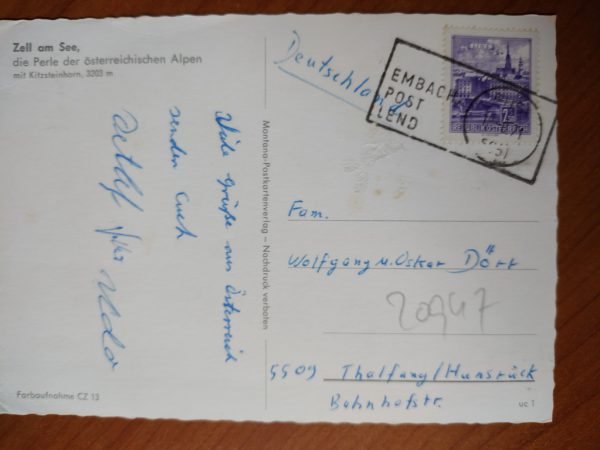 Zell am See,
die Perle der österreichischen Alpen
mit Kitzsteinhorn, 3203 m
Viele Grüße aus Österreich
senden Euch
Detlef
Farbaufnahme CZ 13
Montana-Postkartenverlag – Nachdruck verboten
Deutschland
EMBACH
POST
LEND
REPUBLIK ÖSTERREICH
Fam.
Wolfgang u. Oskar Dörr
20947
5509 Thalfang/Hunsrück
Bahnhofstr.
uc 1